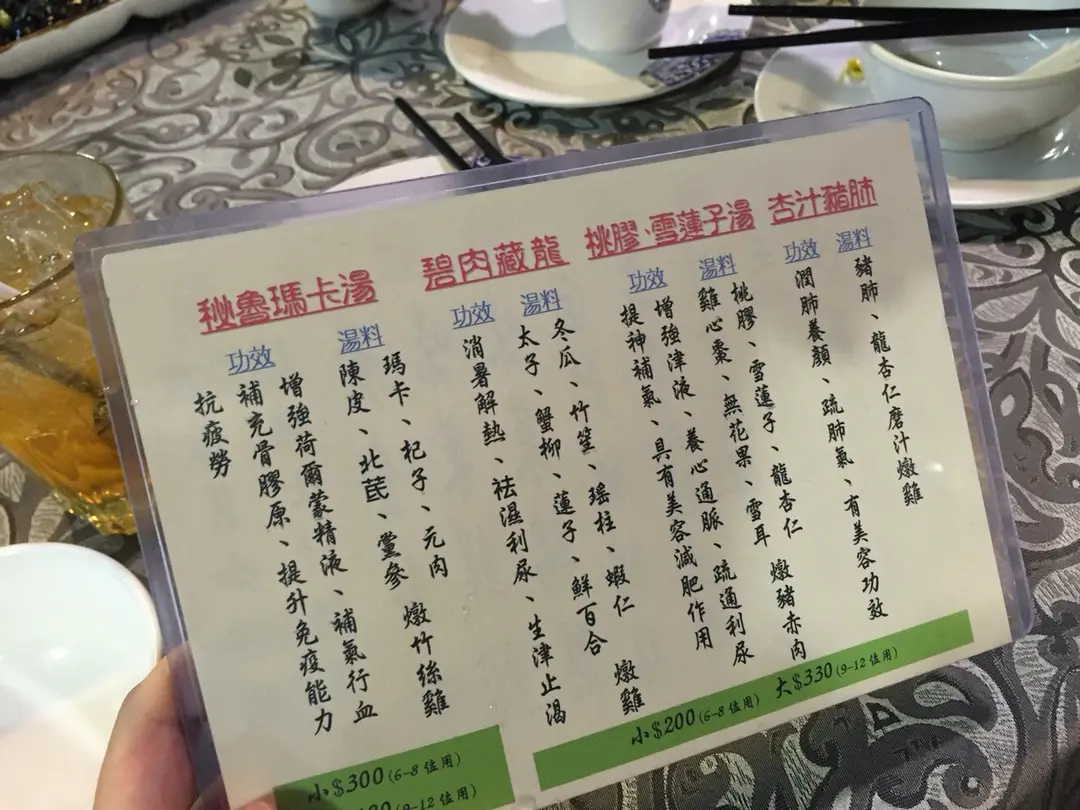 杏汁豬肺
湯料
豬肺、龍杏仁磨汁燉雞
功效
潤肺養顏、疏肺氣、有美容功效
桃膠、雪蓮子湯
湯料
桃膠、雪蓮子、龍杏仁 燉豬赤肉
雞心棗、無花果、雪耳
功效
增強津液、養心通脈、疏通利尿
提神補氣、具有美容減肥作用
碧肉藏龍
湯料
冬瓜、竹笙、瑶柱、蝦仁 燉雞
太子、蟹柳、蓮子、鮮百合
功效
消暑解熱、祛濕利尿、生津止渴
秘魯瑪卡湯
湯料
瑪卡、杞子、元肉 燉竹絲雞
陳皮、北茋、黨參
功效
增強荷爾蒙精液、補氣行血
補充骨膠原、提升免疫能力
抗疲勞
小$200(6-8位用) 大$330(9-12位用)
小$300(6-8位用)
(9-12位用)